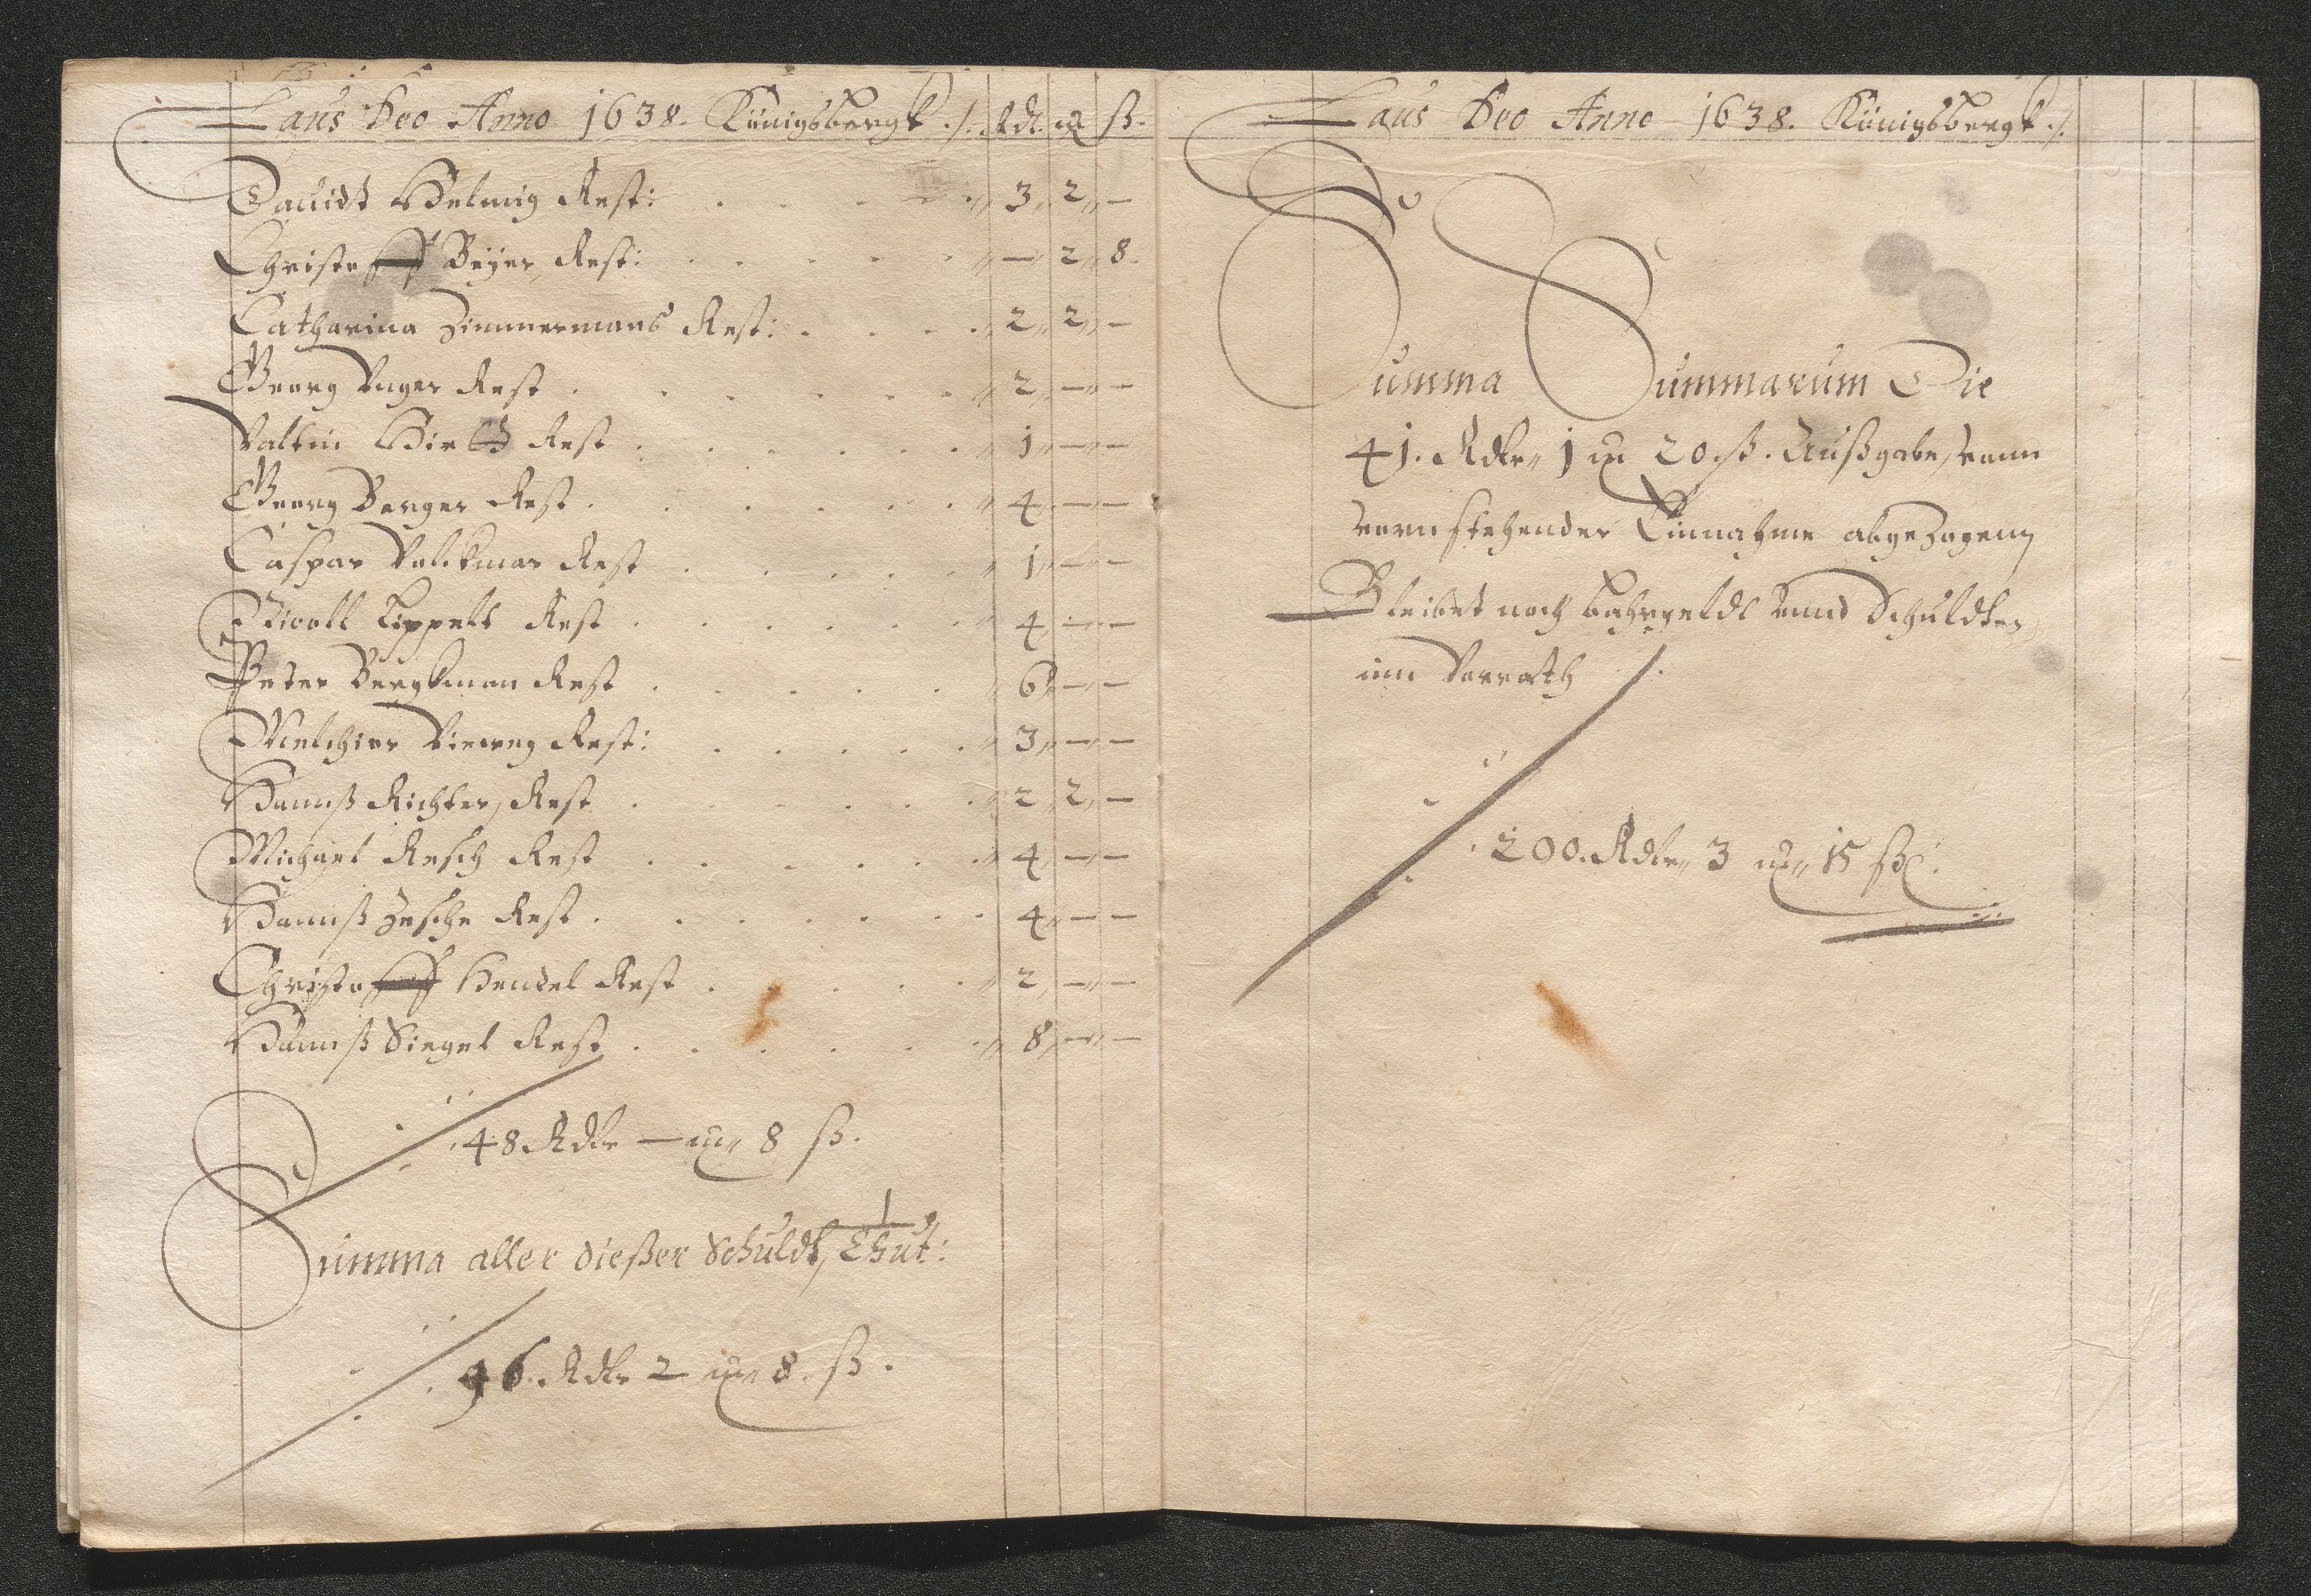 Laus Deo Anno 1638. Künigsbergk ./. Rdl. m ß.
Dauidt Helmig Rest: 3 2 —
Christoff Beÿer Rest: — 2 8.
Catharina Zimmermans Rest: 2 2 —
Georg Vnger Rest 2 — —
Valtin Rest 1 — —
Georg Berger Rest 4 — —
Caspar Volckmar Rest 1 — —
Nicoll Tippelt Rest 4 — —
Peter Bergkman Rest 6 — —
Melchior Vieweg Rest: 3 — —
Hannß Richter, Rest 2 2 —
Michael Resch Rest 4 — —
Hannß Zesche Rest 4 — —
Christoff Hendel Rest 2 — —
Hannß Siegel Rest 8 — —
48 Rdlr — m 8 ß.
Summa aller dießer Schuldt, Thut:
96. Rdlr 2 m 8. ß.
Laus Deo Anno 1638. Künigsbergk ./.
Summa Summarum Die
41. Rdlr 1 m 20. ß. Außgabe, vonn
vornstehender Einnahme abgezogenn
Bleibet noch bahrgeldt vnnd Schuldten
inn Vorrath ./.
200. Rdlr 3 m 15 ß.